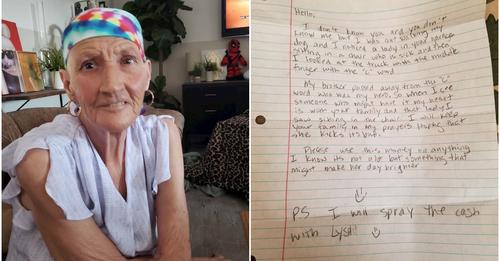 Hello,
I don't know you and you don't
know me but I was out walking my
dog and I noticed a lady in your garage
sitting in a chair who is sick and then
I looked at the truck with the middle
finger with the "c" word
My brother passed away from the "C"
word who was my hero. So when I see
someone who might have it my heart
is with your family and that lady I
saw sitting in the chair. I will keep
your family in my prayers. Hoping that
she kicks its butt.
Please use this money on anything
I know its not a lot but something that
might make her day brighter
PS I will spray the cash
with Lysol!